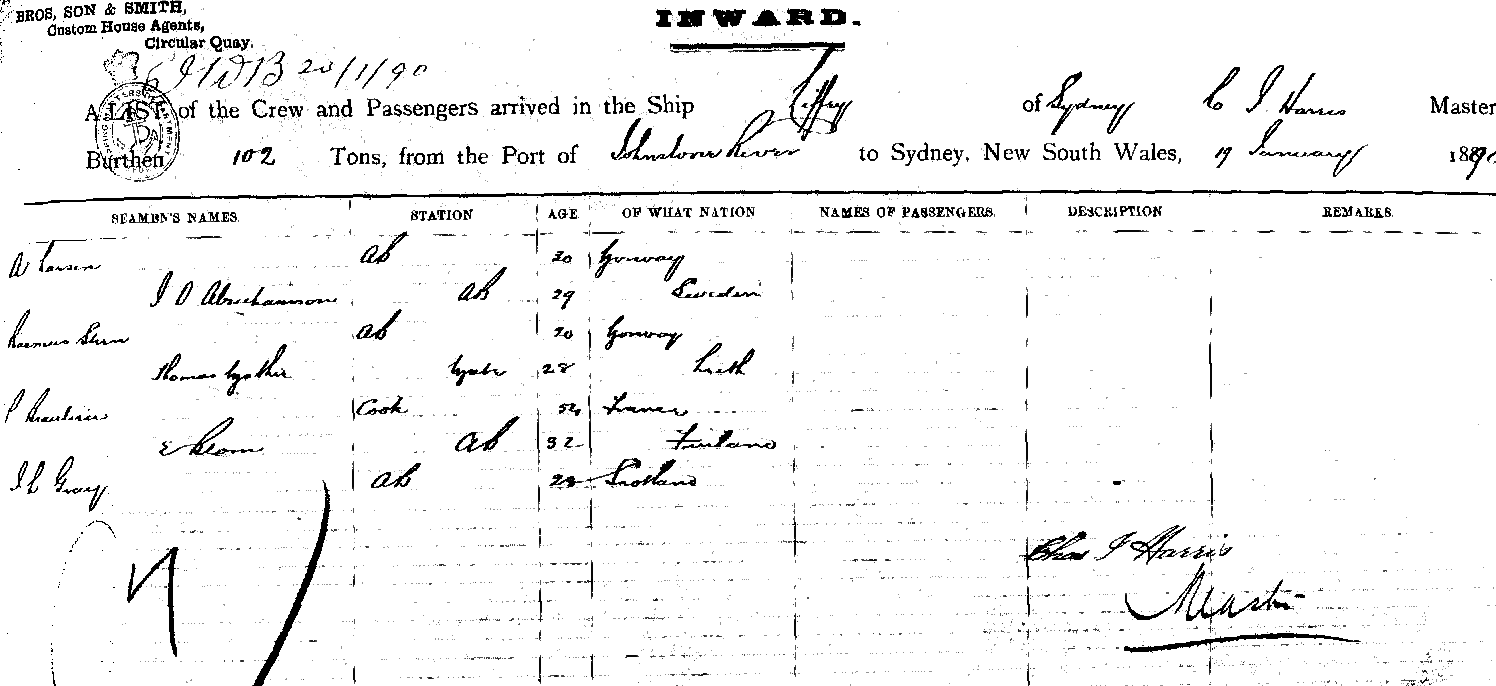 BROS, SON & SMITH,
Custom House Agents,
Circular Quay.
INWARD.
20/1/90
A LIST of the Crew and Passengers arrived in the Ship Liffey of Sydney C J Harris Master
Burthen 102 Tons, from the Port of Johnstone River to Sydney, New South Wales, 19 January 1890
SEAMEN'S NAMES. STATION AGE OF WHAT NATION NAMES OF PASSENGERS. DESCRIPTION REMARKS.
A Larsen ab 20 Gorway
J O Abrahamson ab 29 Sweden
Rasmus ab 20 Gorway
Thomas 28 Leith
P Cook France
E Blom ab 32 Finland
J L Gray ab 28 Scotland
Chas J Harris
Master
7